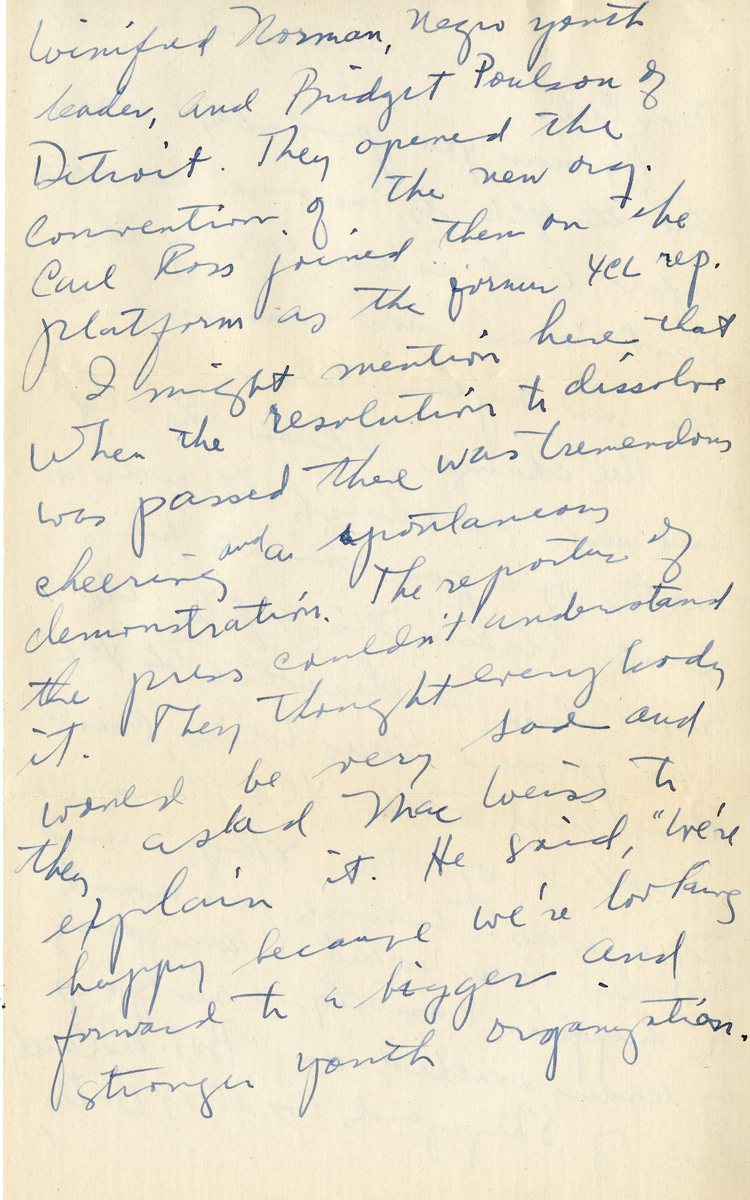 Winifred Norman, Negro youth
leader, and Bridget Poulson of
Detroit. They opened the
convention of the new org.
Carl Ross joined them on the
platform as the former YCL rep.
I might mention here that
when the resolution to dissolve
was passed there was tremendous
cheering and a spontaneous
demonstration. The reporters of
the press couldn't understand
it. They thought everybody
would be very sad and
they asked Mac Weiss to
explain it. He said, "We're
happy because we're looking
forward to a bigger and
stronger youth organization.